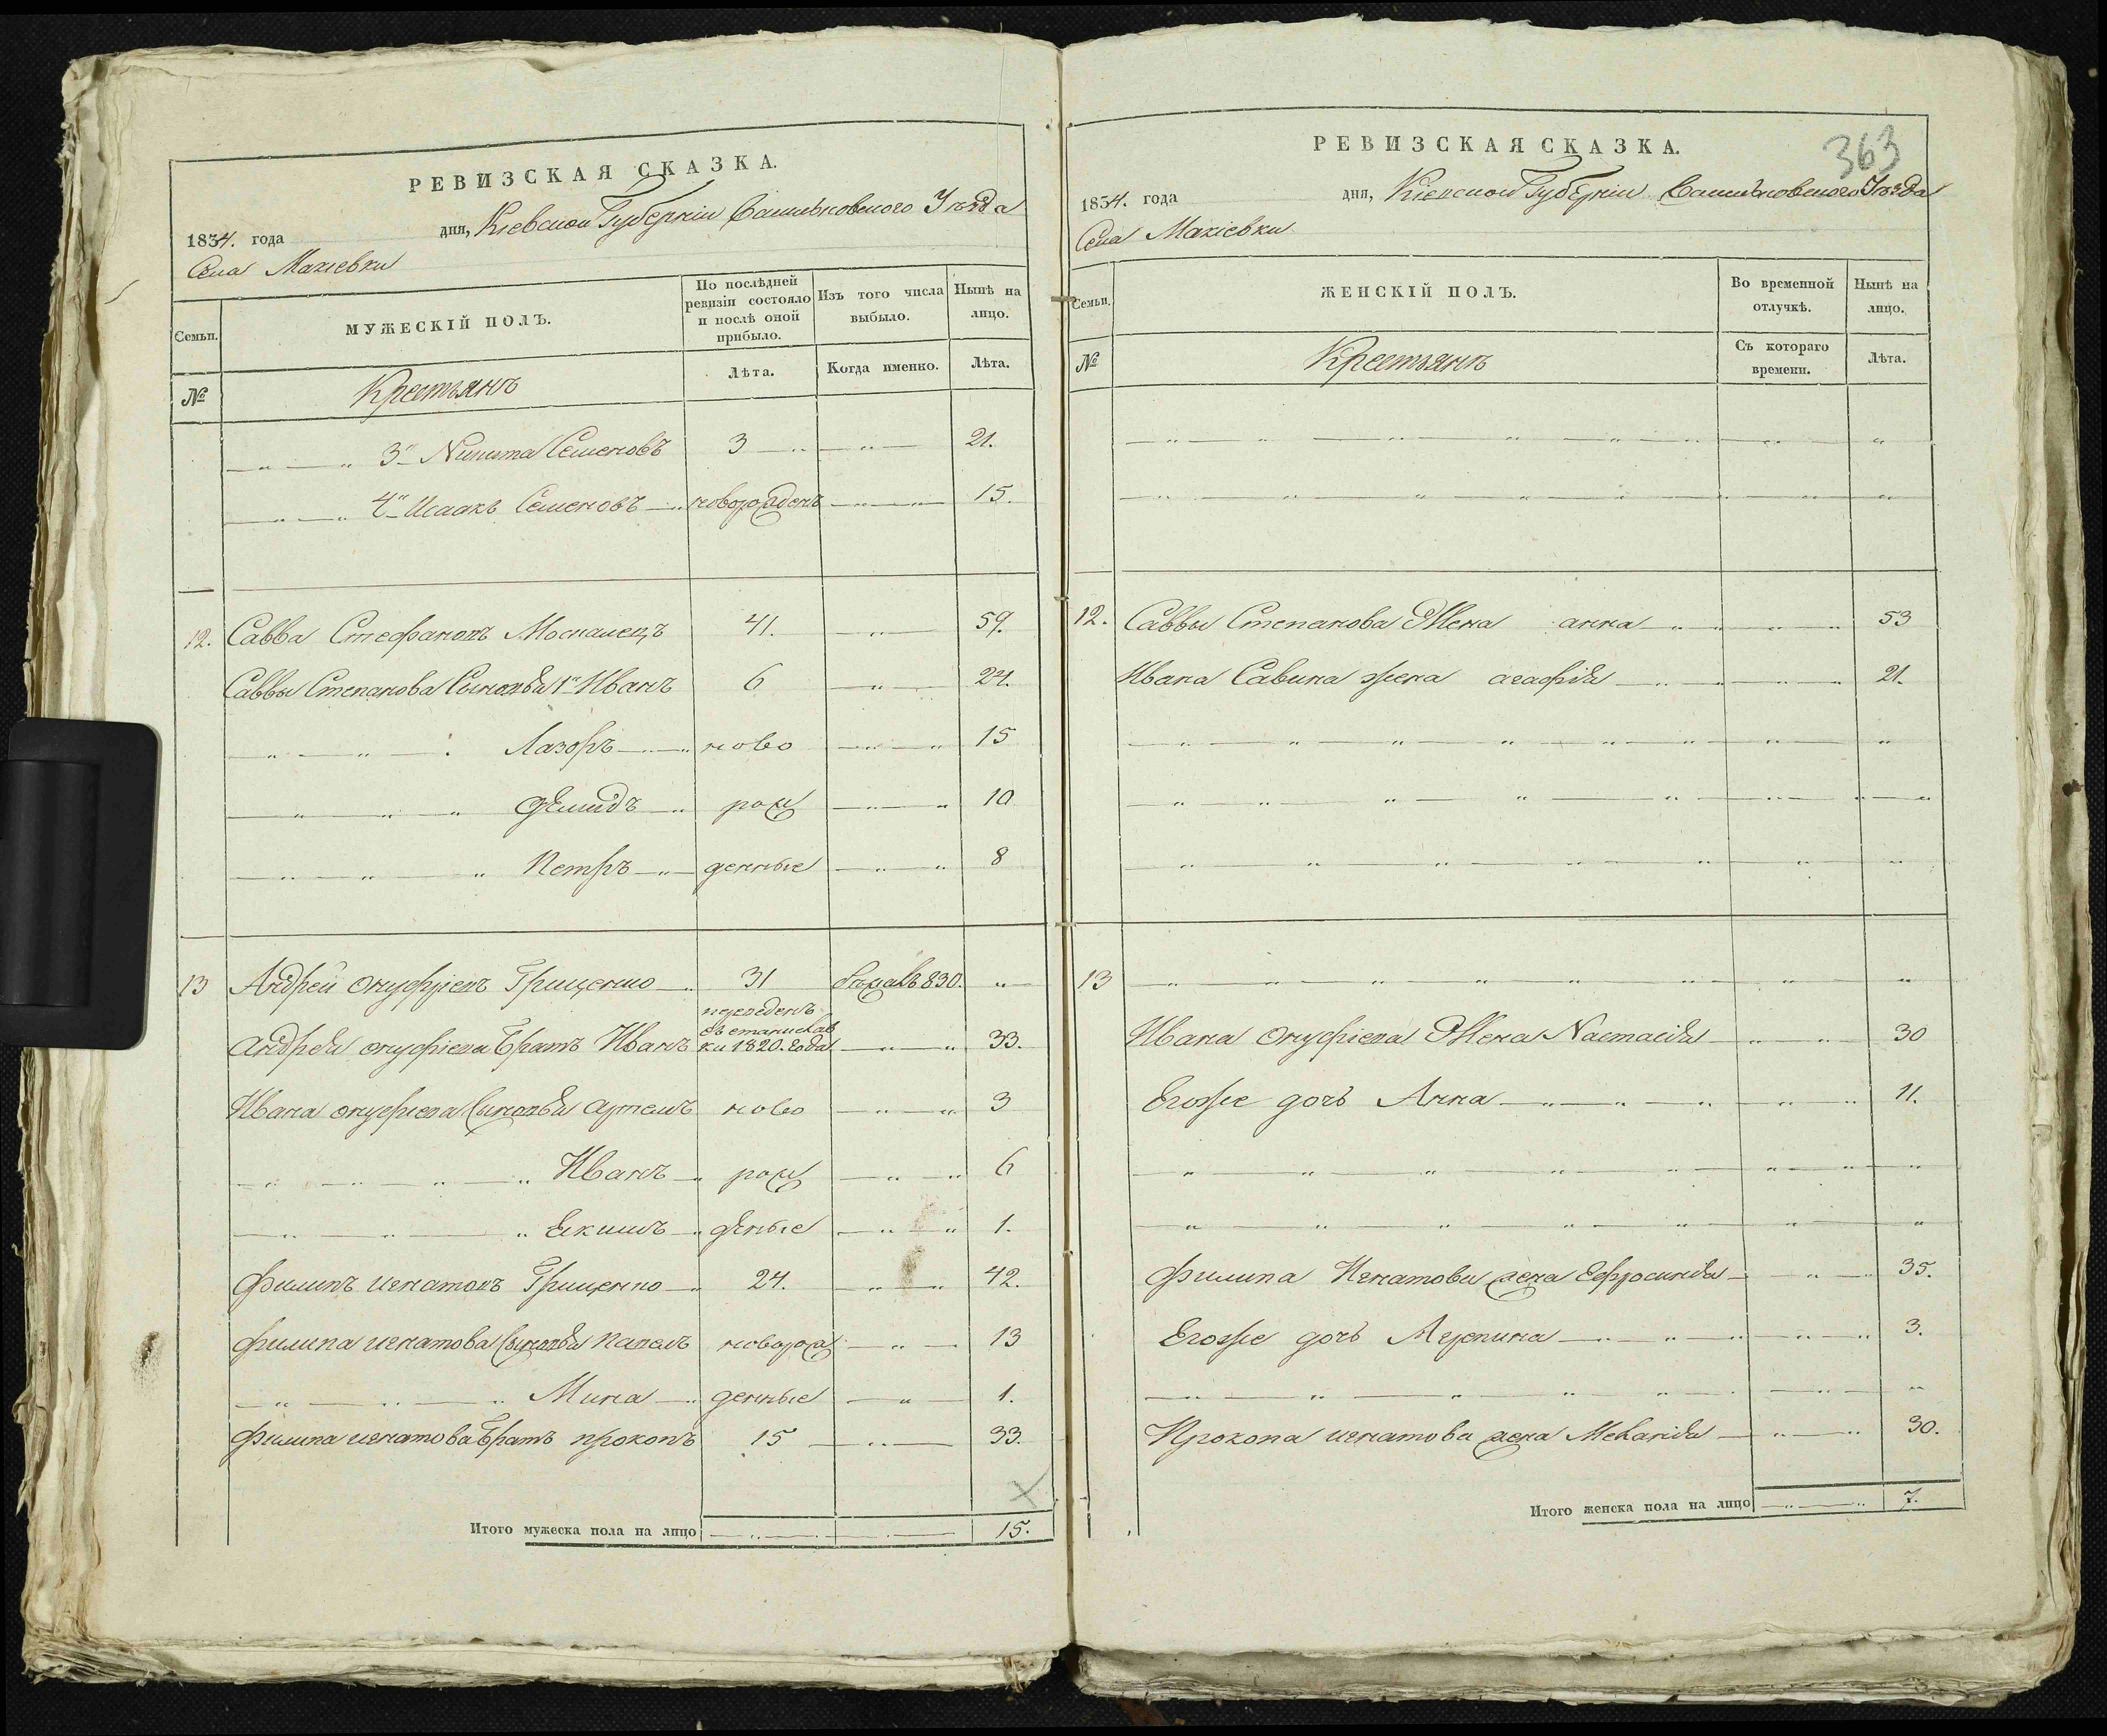 РЕВИЗСКАЯ СКАЗКА.
1834. года дня, Кіевской Губерніи Васильковского Уѣзда
Села Макіевки
Семьи. МУЖЕСКІЙ ПОЛЪ. По послѣдней ревизіи состояло и послѣ оной прибыло. Изъ того числа выбыло. Нынѣ на лицо.
№ Крестьянъ Лѣта. Когда именно. Лѣта.
— " — " 3й Никита Семеновъ 3 — " — " — 21.
— " — " 4й Исаакъ Семеновъ — " новорожденъ — " — 15.
12. Савва Стефановъ Москалецъ 41. — " — 59.
Саввы Степанова Сыновья 1й Иванъ 6 — " — 24.
— " — " — " Лазоръ — " ново — " — " 15
— " — " — " Демидъ — " рож — " — " 10
— " — " — " Петръ — " — денные — " — " 8
13 Андрей Онуфріевъ Грищенко — " 31 бѣжалъ 830. " —
переведенъ
Андрея онуфріева Братъ Иванъ съ станислав
ки 1820. года — " — " 33.
Ивана онуфріева Сыновья Артемъ ново — " — " 3
— " — " — " — " Иванъ — " рож — " — " 6
— " — " — " Екимъ — " деные — " — " 1.
Филипъ игнатовъ Грищенко — " 24. — " — " 42.
Филипа игнатова Сыновья Павелъ новорож — " — 13
— " — " — " Мина — " денные — " — 1.
Филипа игнатова Братъ прокопъ 15 — " — 33.
Итого мужеска пола на лицо — " — " — 15.
363
РЕВИЗСКАЯ СКАЗКА.
1834. года дня, Кіевской Губерніи Васильковского Уѣзда
Села Макіевки
Семьи. ЖЕНСКІЙ ПОЛЪ. Во временной отлучкѣ. Нынѣ на лицо.
№ Крестьянъ Съ котораго времени. Лѣта.
— " — " — " — " — " — " — "
— " — " — " — " — " — " — "
12. Саввы Степанова Жена анна — " — " — " — " 53
Ивана Савина жена агафія — " — " — " — " 21.
— " — " — " — " — " — " — "
— " — " — " — " — " — " — "
— " — " — " — " — " — " — "
13 — " — " — " — " — " — " — "
Ивана Онуфріева Жена Настасія — " — " 30
Егоже дочь Анна — " — " — " — " — " 11.
— " — " — " — " — " — " — "
— " — " — " — " — " — " — "
Филипа Игнатова жена Ефросинія — " — " 35.
Егоже дочь Агрепина — " — " — " — " — " 3.
— " — " — " — " — " — " — "
Прокопа игнатова жена Меланія — " — " 30.
Итого женска пола на лицо — " — " 7.